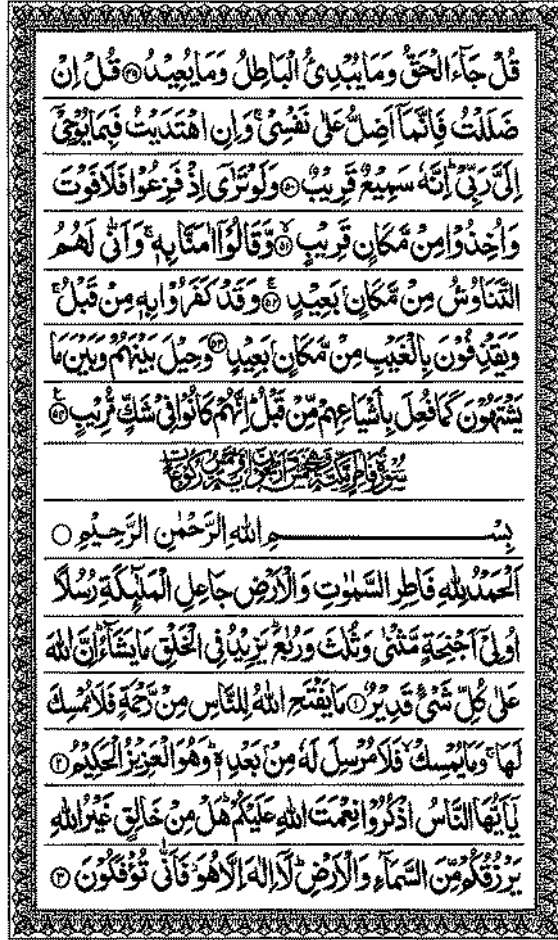 قُلْ جَآءَ الْحَقُّ وَمَا يُبْدِئُ الْبَاطِلُ وَمَا يُعِيْدُ ﴿۴۹﴾ قُلْ اِنْ
ضَلَلْتُ فَاِنَّمَاۤ اَضِلُّ عَلٰى نَفْسِىْ ۚ وَاِنِ اهْتَدَيْتُ فَبِمَا يُوْحِىْۤ
اِلَىَّ رَبِّىْ ؕ اِنَّهٗ سَمِيْعٌ قَرِيْبٌ ﴿۵۰﴾ وَلَوْ تَرٰٓى اِذْ فَزِعُوْا فَلَا فَوْتَ
وَاُخِذُوْا مِنْ مَّكَانٍ قَرِيْبٍ ۙ﴿۵۱﴾ وَّقَالُوْۤا اٰمَنَّا بِهٖ ۚ وَاَنّٰى لَهُمُ
التَّنَاوُشُ مِنْ مَّكَانٍۢ بَعِيْدٍ ۚۖ﴿۵۲﴾ وَقَدْ كَفَرُوْا بِهٖ مِنْ قَبْلُ ۚ
وَيَقْذِفُوْنَ بِالْغَيْبِ مِنْ مَّكَانٍۢ بَعِيْدٍ ﴿۵۳﴾ وَحِيْلَ بَيْنَهُمْ وَبَيْنَ مَا
يَشْتَهُوْنَ كَمَا فُعِلَ بِاَشْيَاعِهِمْ مِّنْ قَبْلُ ؕ اِنَّهُمْ كَانُوْا فِىْ شَكٍّ مُّرِيْبٍ ﴿۵۴﴾
سُوْرَةُ فَاطِرٍ مَّكِّيَّةٌ وَّهِىَ خَمْسٌ وَّاَرْبَعُوْنَ اٰيَةً وَّخَمْسُ رُكُوْعَاتٍ
بِسْمِ اللهِ الرَّحْمٰنِ الرَّحِيْمِ ○
اَلْحَمْدُ لِلّٰهِ فَاطِرِ السَّمٰوٰتِ وَالْاَرْضِ جَاعِلِ الْمَلٰٓئِكَةِ رُسُلًا
اُولِىْۤ اَجْنِحَةٍ مَّثْنٰى وَثُلٰثَ وَرُبٰعَ ؕ يَزِيْدُ فِى الْخَلْقِ مَا يَشَآءُ ؕ اِنَّ اللهَ
عَلٰى كُلِّ شَىْءٍ قَدِيْرٌ ﴿۱﴾ مَا يَفْتَحِ اللهُ لِلنَّاسِ مِنْ رَّحْمَةٍ فَلَا مُمْسِكَ
لَهَا ۚ وَمَا يُمْسِكْ ۙ فَلَا مُرْسِلَ لَهٗ مِنْۢ بَعْدِهٖ ؕ وَهُوَ الْعَزِيْزُ الْحَكِيْمُ ﴿۲﴾
يٰۤاَيُّهَا النَّاسُ اذْكُرُوْا نِعْمَتَ اللهِ عَلَيْكُمْ ؕ هَلْ مِنْ خَالِقٍ غَيْرُ اللهِ
يَرْزُقُكُمْ مِّنَ السَّمَآءِ وَالْاَرْضِ ؕ لَاۤ اِلٰهَ اِلَّا هُوَ ۖ فَاَنّٰى تُؤْفَكُوْنَ ﴿۳﴾